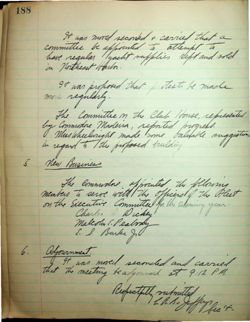 188
It was moved seconded & carried that a
committee be appointed to attempt to
have regular yacht supplies kept and sold
in Northeast Harbor.
It was proposed that protests be made
more regularly.
The Committee on the Club House, represented
by Commodore Madeira, reported progress.
Wheelwright made some valuable suggestions
in regard to the proposed building
5. New Business
The commodore appointed the following
members to serve with the officers of the Fleet
on the Executive Committee for the coming year
Charles Dickey
Malcolm E. Peabody
E. I. Burke Jr.
6. Adjournment
It was moved seconded and carried
that the meeting be adjourned at 9:12 P.M.
Respectfully submitted